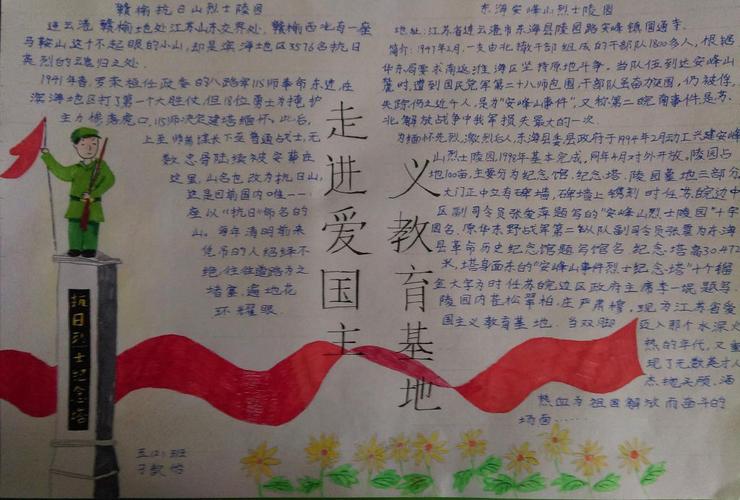 赣榆抗日山烈士陵园
连云港赣榆地处江苏山东交界处,赣榆西北有一座
马鞍山这个不起眼的小山,却是滨海地区3576名抗日
英烈的魂归之处。
1941年春,罗荣桓任政委的八路军115师奉命东进,在
滨海地区打了第一个大胜仗,但18位勇士为掩护
主力惨落虎口,115师决定建塔缅怀。此后,
上至师参谋长下至普通战士,无
数忠骨陆续被安葬在
这里,山名也改为抗日山,
这是目前国内唯一一
座以"抗日"命名的
山。每年清明前来
凭吊的人络绎不
绝,往往道路为之
堵塞,遍地花
环耀眼
抗日烈士纪念塔
五(2)班
走进爱国主
义教育基地
东海安峰山烈士陵园
地址:江苏省连云港市东海县陵园路安峰镇国道旁
简介:1947年2月,一支由北撤干部组成的干部队1800多人,根据
华东局要求南返淮海区坚持原地斗争。当队伍到达安峰山
麓时,遭到国民党军第二十八师包围,干部队虽奋力突围,仍被俘、
失踪伤亡近千人,是为"安峰山事件",又称第二皖南事件是苏
北解放战争中我军损失最大的一次。
为缅怀先烈,激烈后人,东海县委县政府于1994年2月动工兴建安峰
山烈士陵园,1998年基本完成,同年4月对外开放。陵园占
地100亩,主要分为纪念馆,纪念塔、陵园墓地三部分
大门正中立有碑墙,碑墙上镌刻时任苏、皖边中
区副司令员张爱萍题写的"安峰山烈士陵园"十字
园名,原华东野战军第二纵队副司令员张震为东海
县革命历史纪念馆题写馆名纪念塔高30.472
米,塔身西东的"安峰山事件烈士纪念塔"十个镏
金大字为时任苏皖边区政府主席李一氓题写.
陵园内苍松翠柏,庄严肃穆,现为江苏省爱
国主义教育基地.当双脚迈入那个水深火
热的年代,又重
现了无数英才人
杰抛头颅,洒
热血为祖国解放而奋斗的
场面……